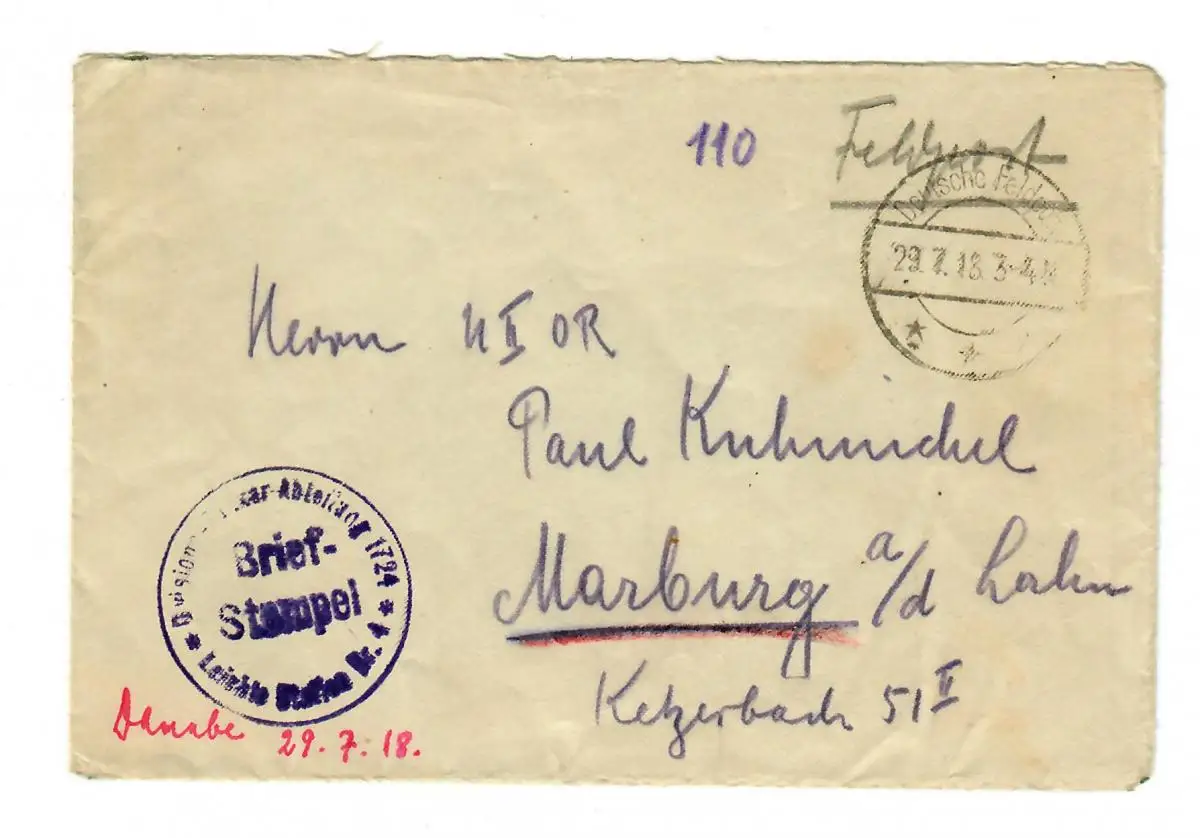 110 Feldpost
Deutsche Feldpost
29.7.18. 3-4 N
Herrn
Paul Kuhmichel
Marburg a/d Lahn
Ketzerbach 51 II
Abteilung 1724
Brief-
Stempel
Leichte Station Nr. 4
29. 7. 18.